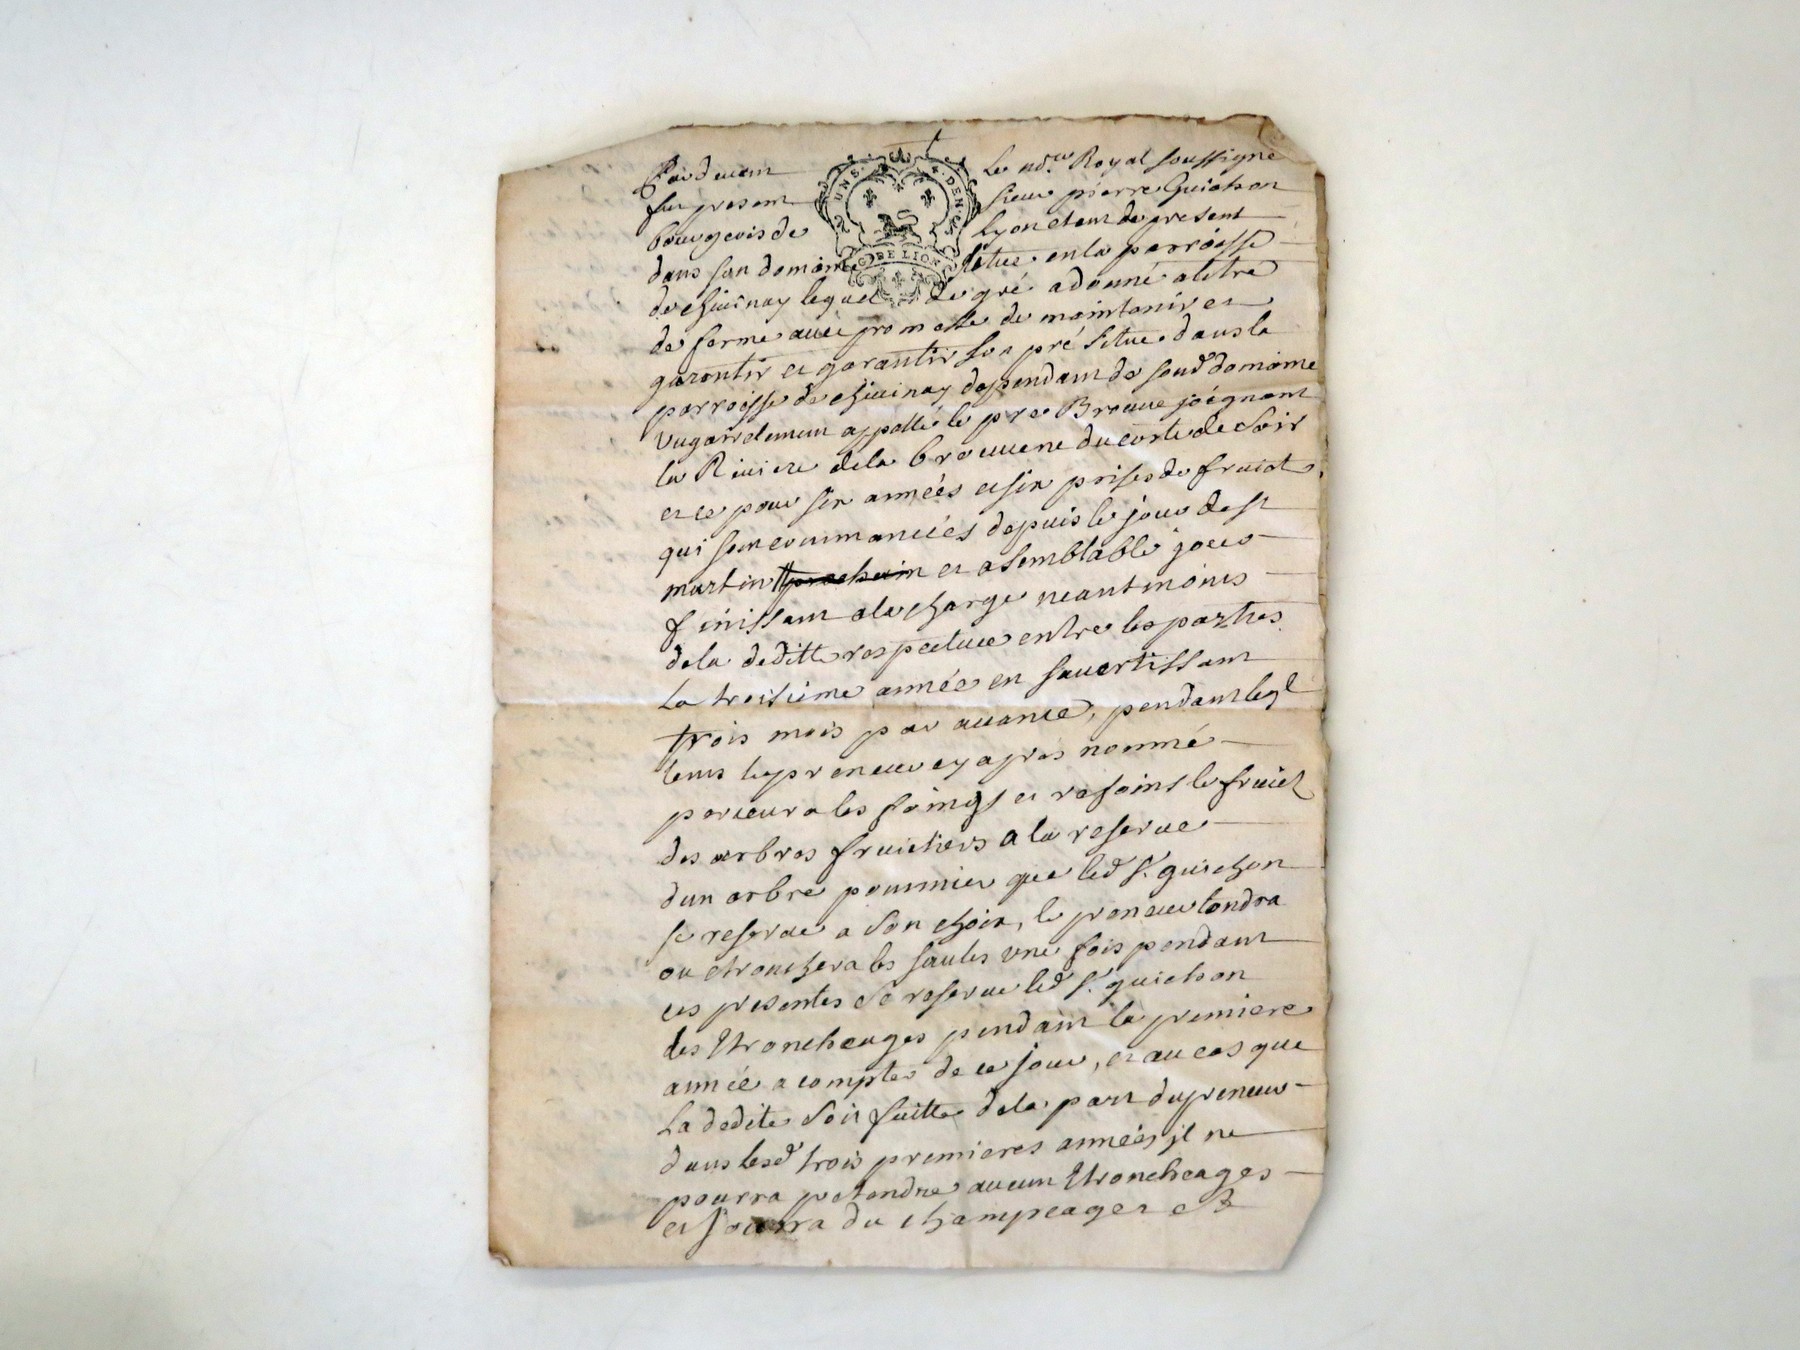 Pardevant le no.re Royal soussigne
fut present sieur pierre Guichon
bourgeois de Lyon etant de present
dans son domaine situe en la parroisse
de chivinay lequel de gré a donné a titre
de ferme avec promesse de maintenir et
garentir et garantir son pré situe dans la
parroisse de chivinay dependant de sond domaine
vugairelement appellé le pre Brevene joignant
la Riviere dela brevuene du costé de soir
et ce pour six années et six prises de fruict
qui sont commancées depuis le jour de st
martin prochain et a semblable jour
finissant ala charge neantmoins
dela deditte respective entre les parties
la troisieme année en savertissant
trois mois par avance, pendant leql
tems le preneur cy apres nommé
percevra les foings et refoins le fruict
des arbres fruictiers a la reserve
dun arbre pommier que led sr. guichon
se reserve a son choix, le preneur tondra
ou etronchera les saules une fois pendant
ces presentes se reserve led sr. guichon
les etroncheages pendant la premiere
année a compter de ce jour, et au cas que
la dedite soit faitte dela part du preneur
dans lesd trois premieres années, il ne
pourra pretendre aucun etroncheages
et jouira du champeager et
UNS. 4. DEN.
G. DE LION